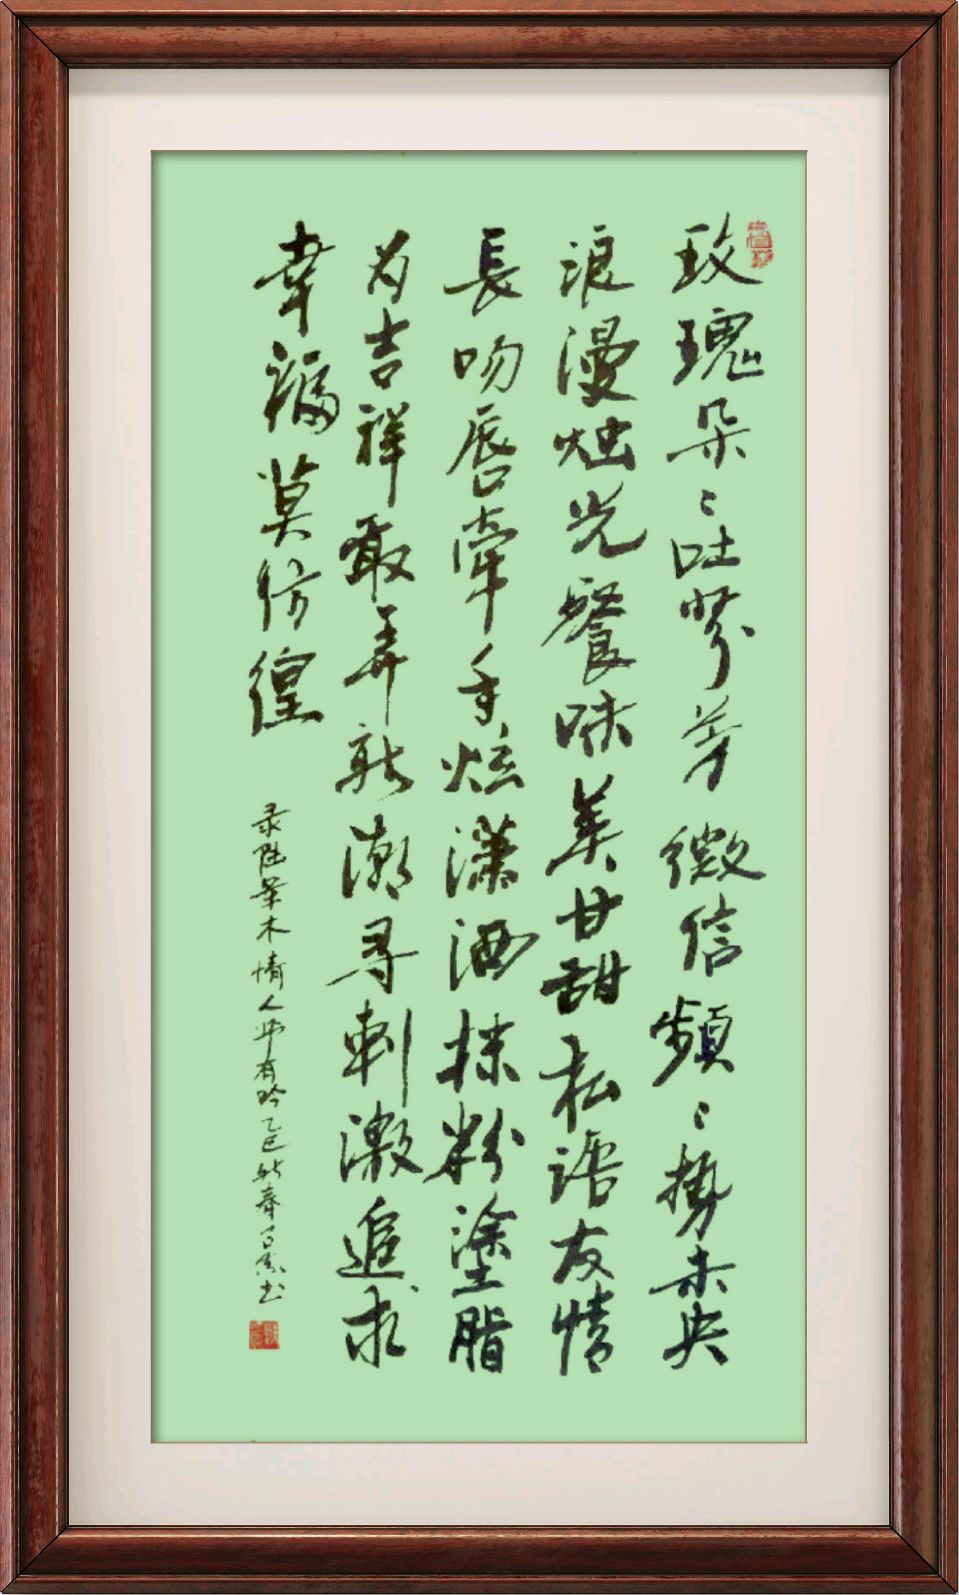 玫瑰朵〻吐芬芳微信頻〻势未央
浪漫烛光餐味美甘甜私語友情
長吻唇牽手炫瀟洒抹粉塗脂
为吉祥敢弄新潮寻刺激追求
幸福莫彷徨
录陆木情人节有吟乙巳秋书